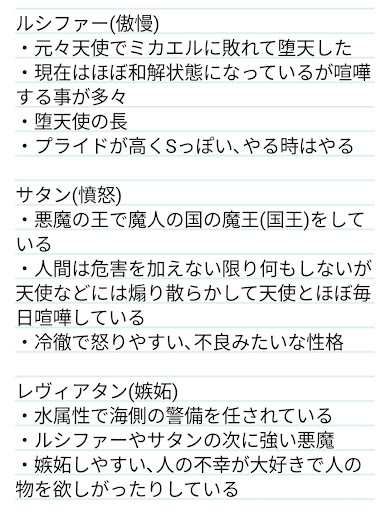 ルシファー(傲慢)
・元々天使でミカエルに敗れて堕天した
・現在はほぼ和解状態になっているが喧嘩
する事が多々
・堕天使の長
・プライドが高くSっぽい、やる時はやる
サタン(憤怒)
・悪魔の王で魔人の国の魔王(国王)をして
いる
・人間は危害を加えない限り何もしないが
天使などには煽り散らかして天使とほぼ毎
日喧嘩している
・冷徹で怒りやすい、不良みたいな性格
レヴィアタン(嫉妬)
・水属性で海側の警備を任されている
・ルシファーやサタンの次に強い悪魔
・嫉妬しやすい、人の不幸が大好きで人の
物を欲しがったりしている